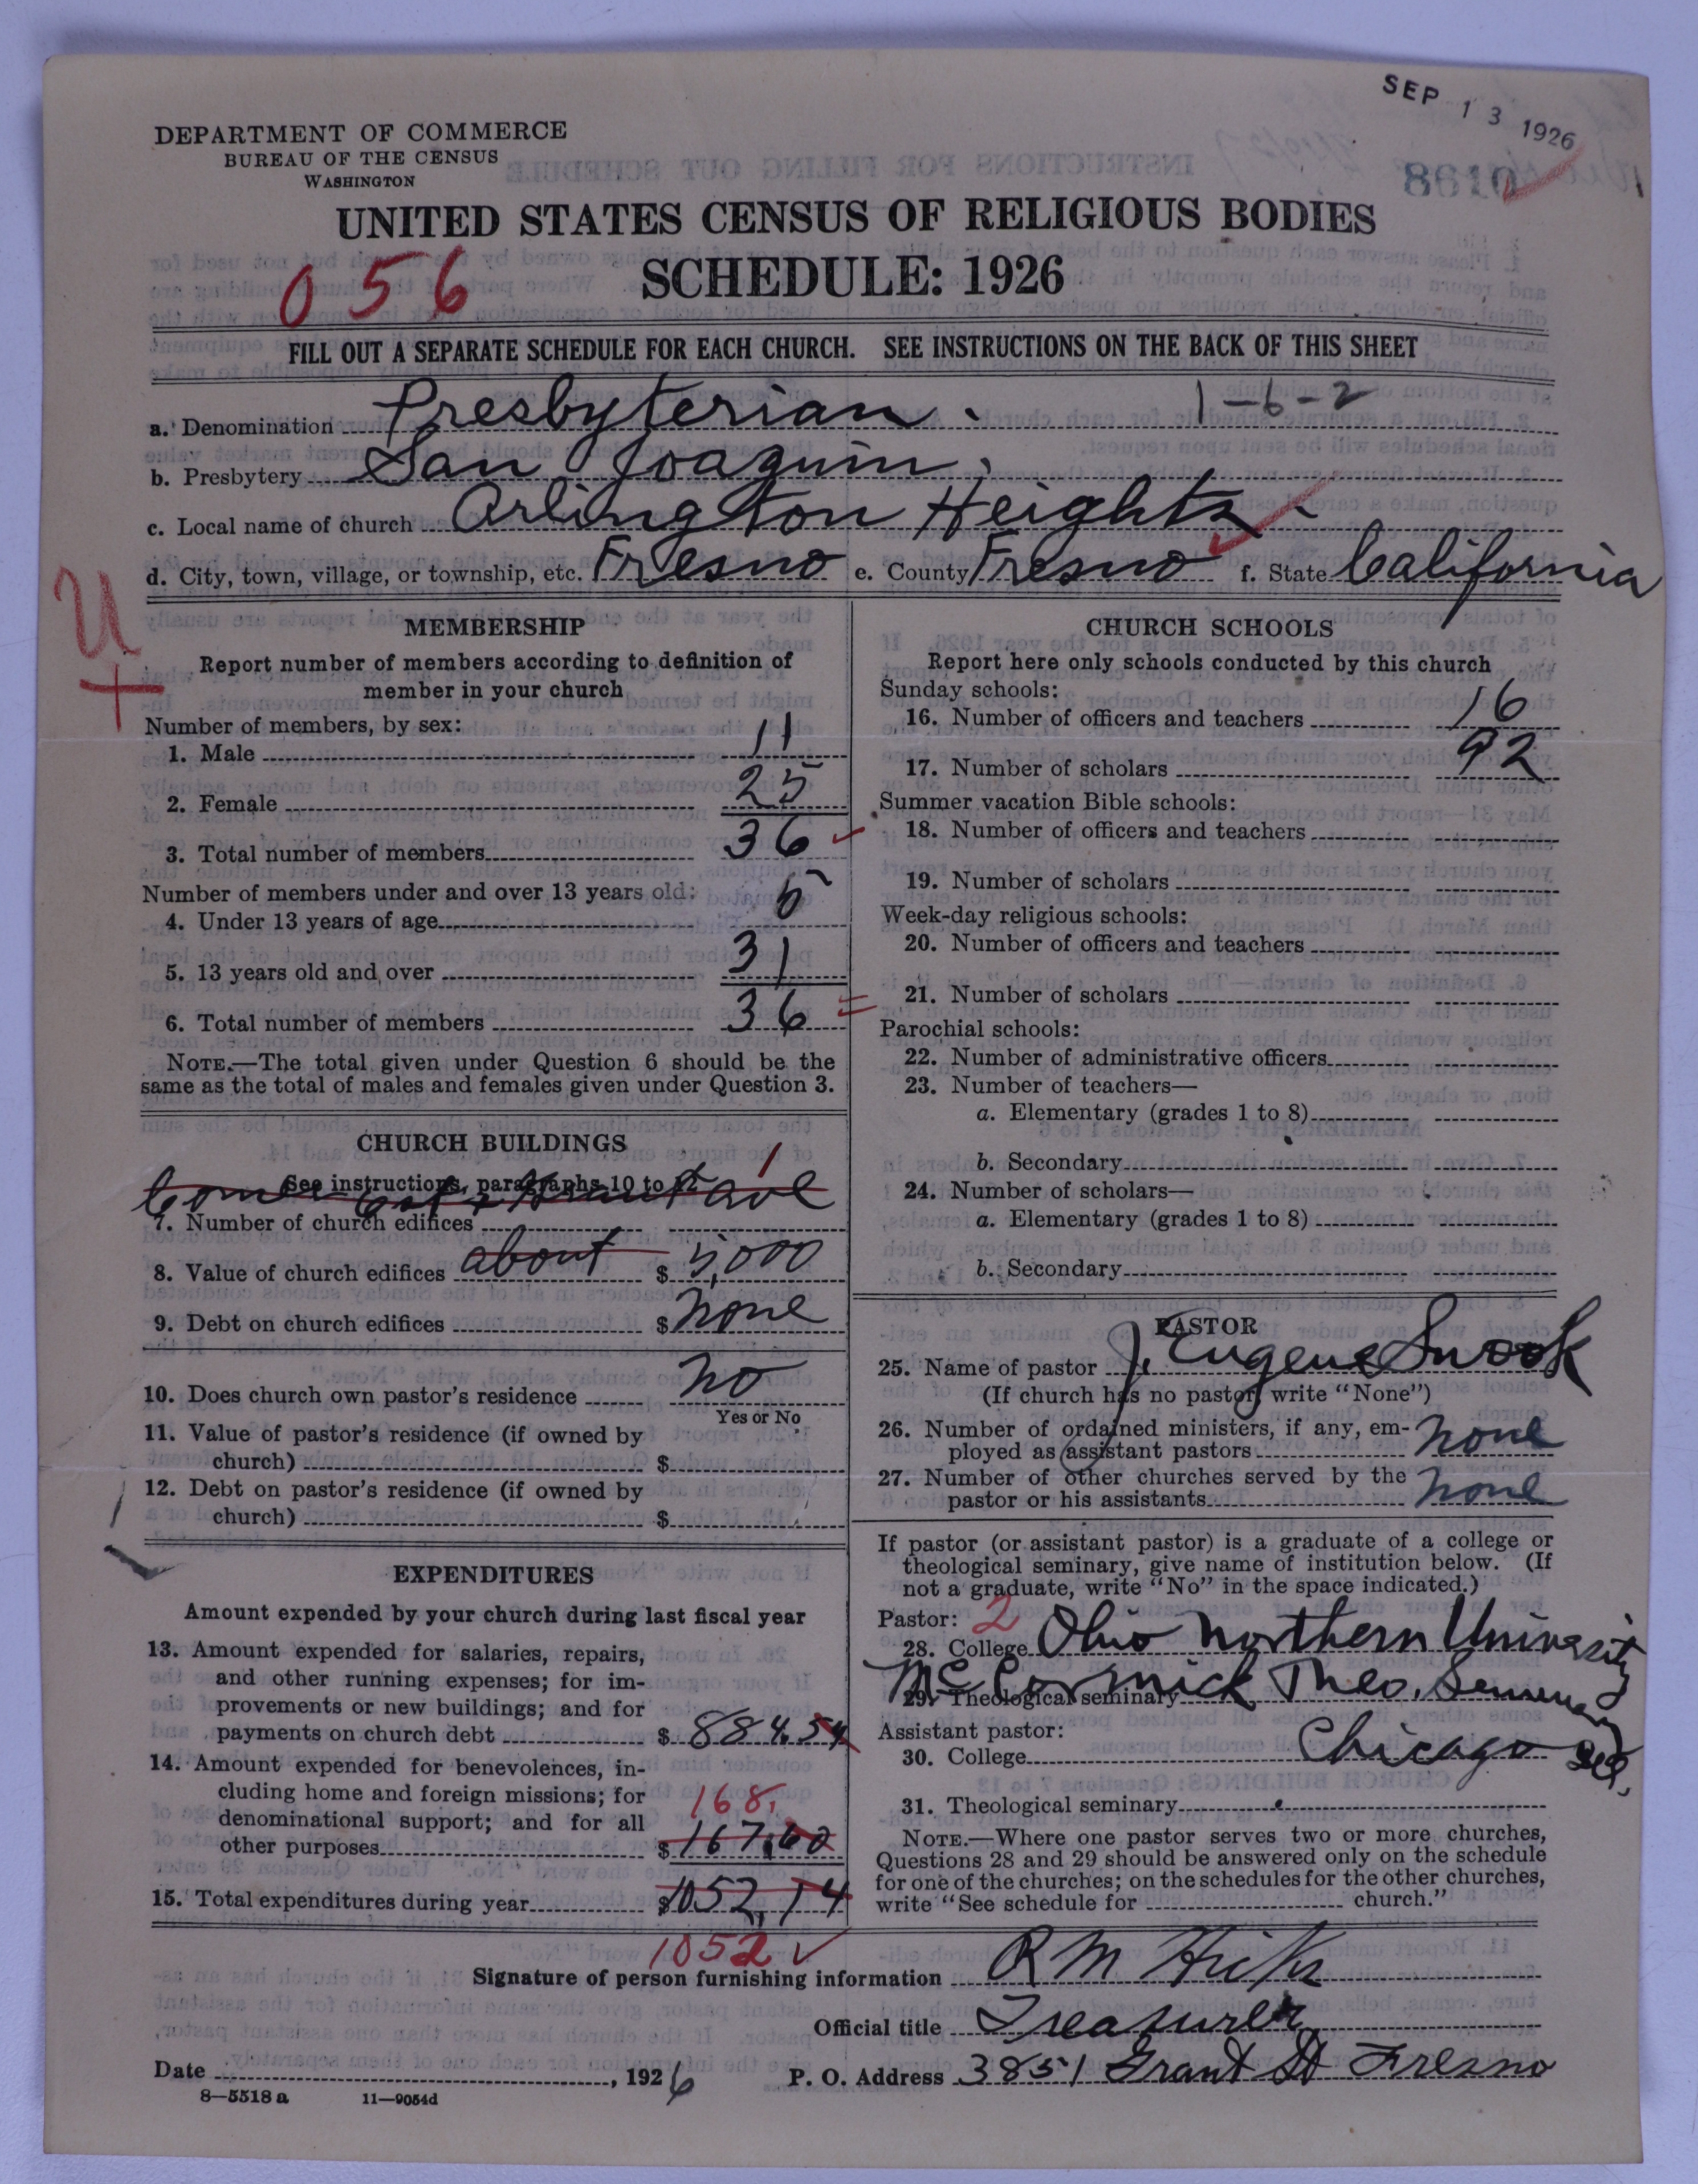 SEP 13 1926
8610
DEPARTMENT OF COMMERCE
BUREAU OF THE CENSUS
WASHINGTON
UNITED STATES CENSUS OF RELIGIOUS BODIES
056
SCHEDULE: 1926
FILL OUT A SEPARATE SCHEDULE FOR EACH CHURCH. SEE INSTRUCTIONS ON THE BACK OF THIS SHEET
1-6-2
a. Denomination Presbyterian.
b. Presbytery San Joaquin.
c. Local name of church Arlington Heights
d. City, town, village, or township, etc. Fresno e. County Fresno f. State California
U
+
MEMBERSHIP
Report number of members according to definition of
member in your church
Number of members, by sex:
1. Male 11
2. Female 25
3. Total number of members 36
Number of members under and over 13 years old:
4. Under 13 years of age 5
5. 13 years old and over 31
6. Total number of members 36
NOTE.—The total given under Question 6 should be the
same as the total of males and females given under Question 3.
CHURCH BUILDINGS
See instructions, paragraphs 10 to 12
Corner & Grant Ave
1
7. Number of church edifices
8. Value of church edifices about $ 5,000
9. Debt on church edifices $ None
10. Does church own pastor's residence No
Yes or No
11. Value of pastor's residence (if owned by
church) $
12. Debt on pastor's residence (if owned by
church) $
EXPENDITURES
Amount expended by your church during last fiscal year
13. Amount expended for salaries, repairs,
and other running expenses; for im-
provements or new buildings; and for
payments on church debt $ 884.54
14. Amount expended for benevolences, in-
cluding home and foreign missions; for
denominational support; and for all
168.
other purposes $ 167.60
15. Total expenditures during year $ 1052.14
1052
CHURCH SCHOOLS
Report here only schools conducted by this church
Sunday schools:
16. Number of officers and teachers 16
17. Number of scholars 92
Summer vacation Bible schools:
18. Number of officers and teachers
19. Number of scholars
Week-day religious schools:
20. Number of officers and teachers
21. Number of scholars
Parochial schools:
22. Number of administrative officers
23. Number of teachers—
a. Elementary (grades 1 to 8)
b. Secondary
24. Number of scholars—
a. Elementary (grades 1 to 8)
b. Secondary
PASTOR
25. Name of pastor J. Eugene Snook
(If church has no pastor, write "None")
26. Number of ordained ministers, if any, em-
ployed as assistant pastors None
27. Number of other churches served by the
pastor or his assistants None
If pastor (or assistant pastor) is a graduate of a college or
theological seminary, give name of institution below. (If
not a graduate, write "No" in the space indicated.)
Pastor: 2
28. College Ohio Northern University
29. Theological seminary McCormick Theo. Seminary
Assistant pastor: Chicago Ill.
30. College
31. Theological seminary
NOTE.—Where one pastor serves two or more churches,
Questions 28 and 29 should be answered only on the schedule
for one of the churches; on the schedules for the other churches,
write "See schedule for church."
Signature of person furnishing information R M Hicks
Official title Treasurer
Date , 1926 P. O. Address 3851 Grant St Fresno
8—5518 a 11—9054d